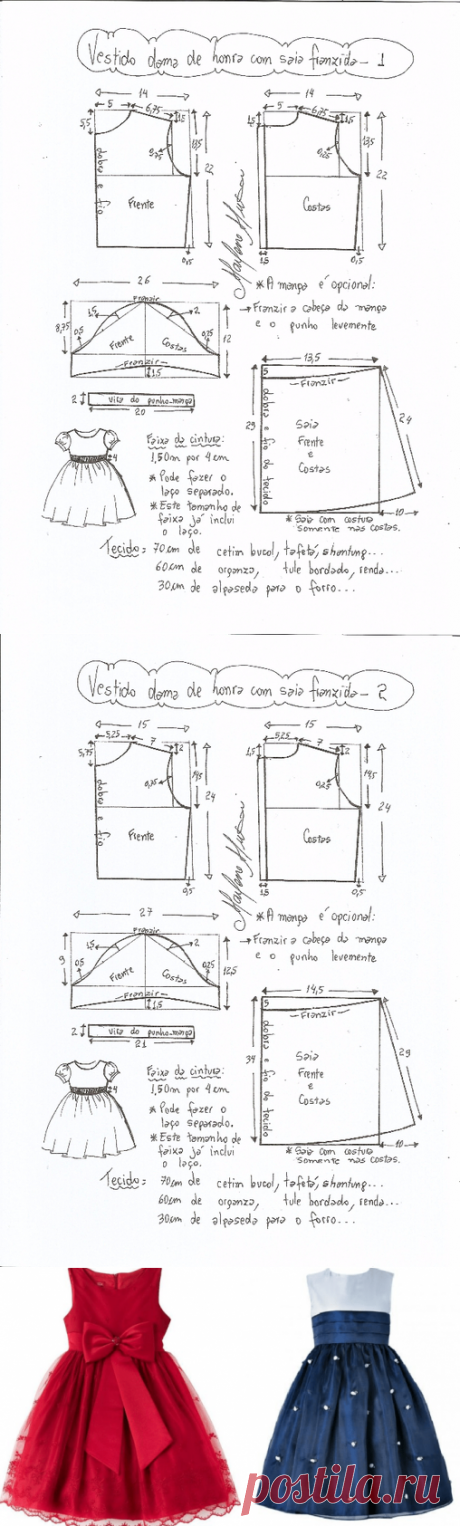 Vestido dama de honra com saia franzida - 1
14
14
5
6,75
1,5
5
6,75
1,5
5,5
1,5
13,5
13,5
0,75
0,25
22
22
dobra e fio
Frente
Costas
0,5
1,5
0,5
26
* A manga é opcional:
Franzir
→ Franzir a cabeça da manga
e o punho levemente
8,75
0,5
1,5
2
0,25
12
Frente
Costas
Franzir
1,5
13,5
2
vista do punho-manga
20
5
Franzir
29
24
dobra e fio do tecido
Saia
Frente
e
Costas
10
* Saia com costura
somente nas costas.
4
Faixa da cintura:
1,50m por 4cm
* Pode fazer o
laço separado.
* Este tamanho de
faixa já inclui
o laço.
Tecido: 70cm de cetim bucol, tafetá, shantung...
60cm de organza, tule bordado, renda...
30cm de alpaseda para o forro...
Vestido dama de honra com saia franzida - 2
15
15
5,25
7
2
5,25
7
2
5,75
1,5
14,5
14,5
0,75
0,25
24
24
dobra e fio
Frente
Costas
0,5
1,5
0,5
27
* A manga é opcional:
Franzir
→ Franzir a cabeça da manga
e o punho levemente
9
0,5
1,5
2
0,25
12,5
Frente
Costas
Franzir
1,5
14,5
2
vista do punho-manga
21
5
Franzir
34
29
dobra e fio do tecido
Saia
Frente
e
Costas
10
* Saia com costura
somente nas costas.
4
Faixa da cintura:
1,50m por 4cm
* Pode fazer o
laço separado.
* Este tamanho de
faixa já inclui
o laço.
Tecido: 70cm de cetim bucol, tafetá, shantung...
60cm de organza, tule bordado, renda...
30cm de alpaseda para o forro...
postila.ru